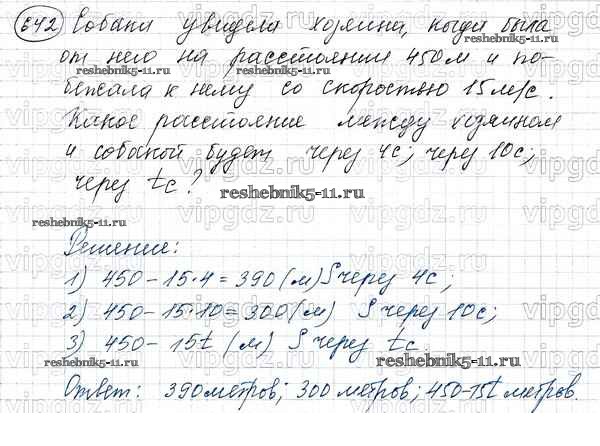 642 Собака увидела хозяина, когда была
от него на расстоянии 450 м и по-
reshebnik5-11.ru
reshebnik5-11.ru
бежала к нему со скоростью 15 м/с.
Какое расстояние между хозяином
и собакой будет через 4с; через 10с;
через tс?
reshebnik5-11.ru
reshebnik5-11.ru
Решение:
1) 450 - 15·4 = 390 (м) S через 4с;
2) 450 - 15·10 = 300 (м) S через 10с;
3) 450 - 15t (м) S через tс.
reshebnik5-11.ru
reshebnik5-11.ru
Ответ: 390 метров; 300 метров; 450-15t метров.
reshebnik5-11.ru
vipgdz.ru